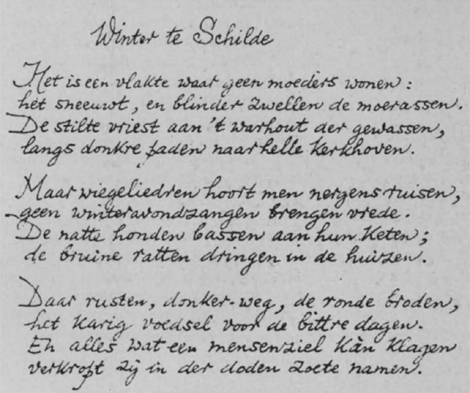 Winter te Schilde
Het is een vlakte waar geen moeders wonen:
het sneeuwt, en blinder zwellen de moerassen.
De stilte vriest aan 't warhout der gewassen,
langs donkre paden naar helle kerkhoven.
Maar wiegeliedren hoort men nergens ruisen,
geen winteravondzangen brengen vrede.
De natte honden bassen aan hun keten;
de bruine ratten dringen in de huizen.
Daar rusten, donker-weg, de ronde broden,
het karig voedsel voor de bittre dagen.
En alles wat een mensenziel kàn klagen
verkropt zij in der doden zoete namen.